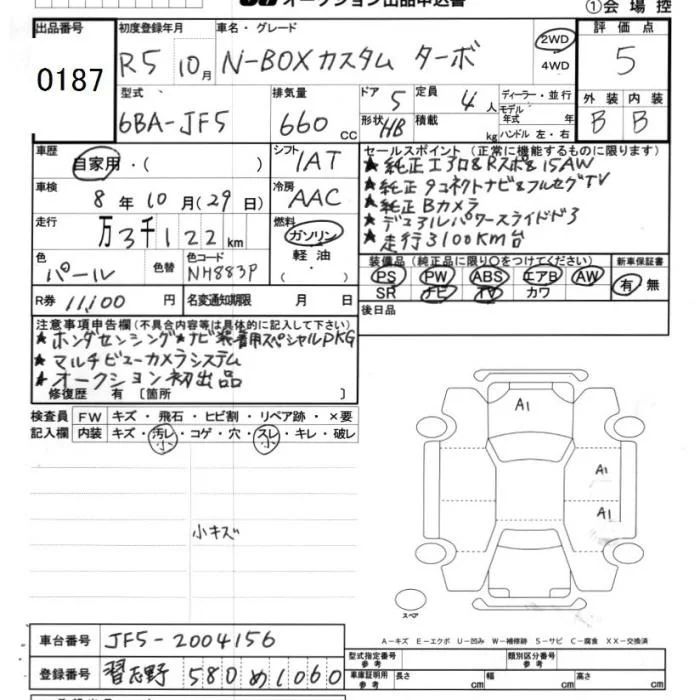 オークション出品申込書
①会場控
出品番号
0187
初度登録年月
R5 10月
車名・グレード
N-BOXカスタム ターボ
2WD
4WD
評価点
5
型式
6BA-JF5
排気量
660 cc
ドア 5
定員 4 人
形状 HB
積載 kg
ディーラー・並行
モデル年式 年式
ハンドル 左・右
外装 内装
B B
車歴
自家用・( )
シフト IAT
車検
8年10月(29)日
冷房 AAC
走行
万3千122km
燃料
ガソリン
軽油
・( )
色
パール
色替
色コード
NH883P
R券 11,100 円
名変通知期限 月 日
セールスポイント(正常に機能するものに限ります)
★純正エアロ&Rスポ&15AW
★純正9コネクトナビ&フルセグTV
★純正Bカメラ
★デュアルパワースライドドア
★走行3100KM台
装備品(純正品に限り○をつけてください)
PS PW ABS エアB AW
SR ナビ TV カワ
新車保証書
有 無
後日品
注意事項申告欄(不具合内容等は具体的に記入して下さい)
★ホンダセンシング★ナビ装着用スペシャルPKG
★マルチビューカメラシステム
★オークション初出品
修復歴 有 [箇所 ]
検査員記入欄
FW キズ・飛石・ヒビ割・リペア跡・×要
内装 キズ・汚レ・コゲ・穴・スレ・キレ・破レ
小 小
小キズ
A1
A1
A1
スペア
A-キズ E-エクボ U-凹み W-補修跡 S-サビ C-腐食 XX-交換済
車台番号 JF5-2004156
登録番号 習志野 580 め 1060
型式指定番号 参考
類別区分番号 参考
車庫証明用 参考
長さ cm 幅 cm 高さ cm